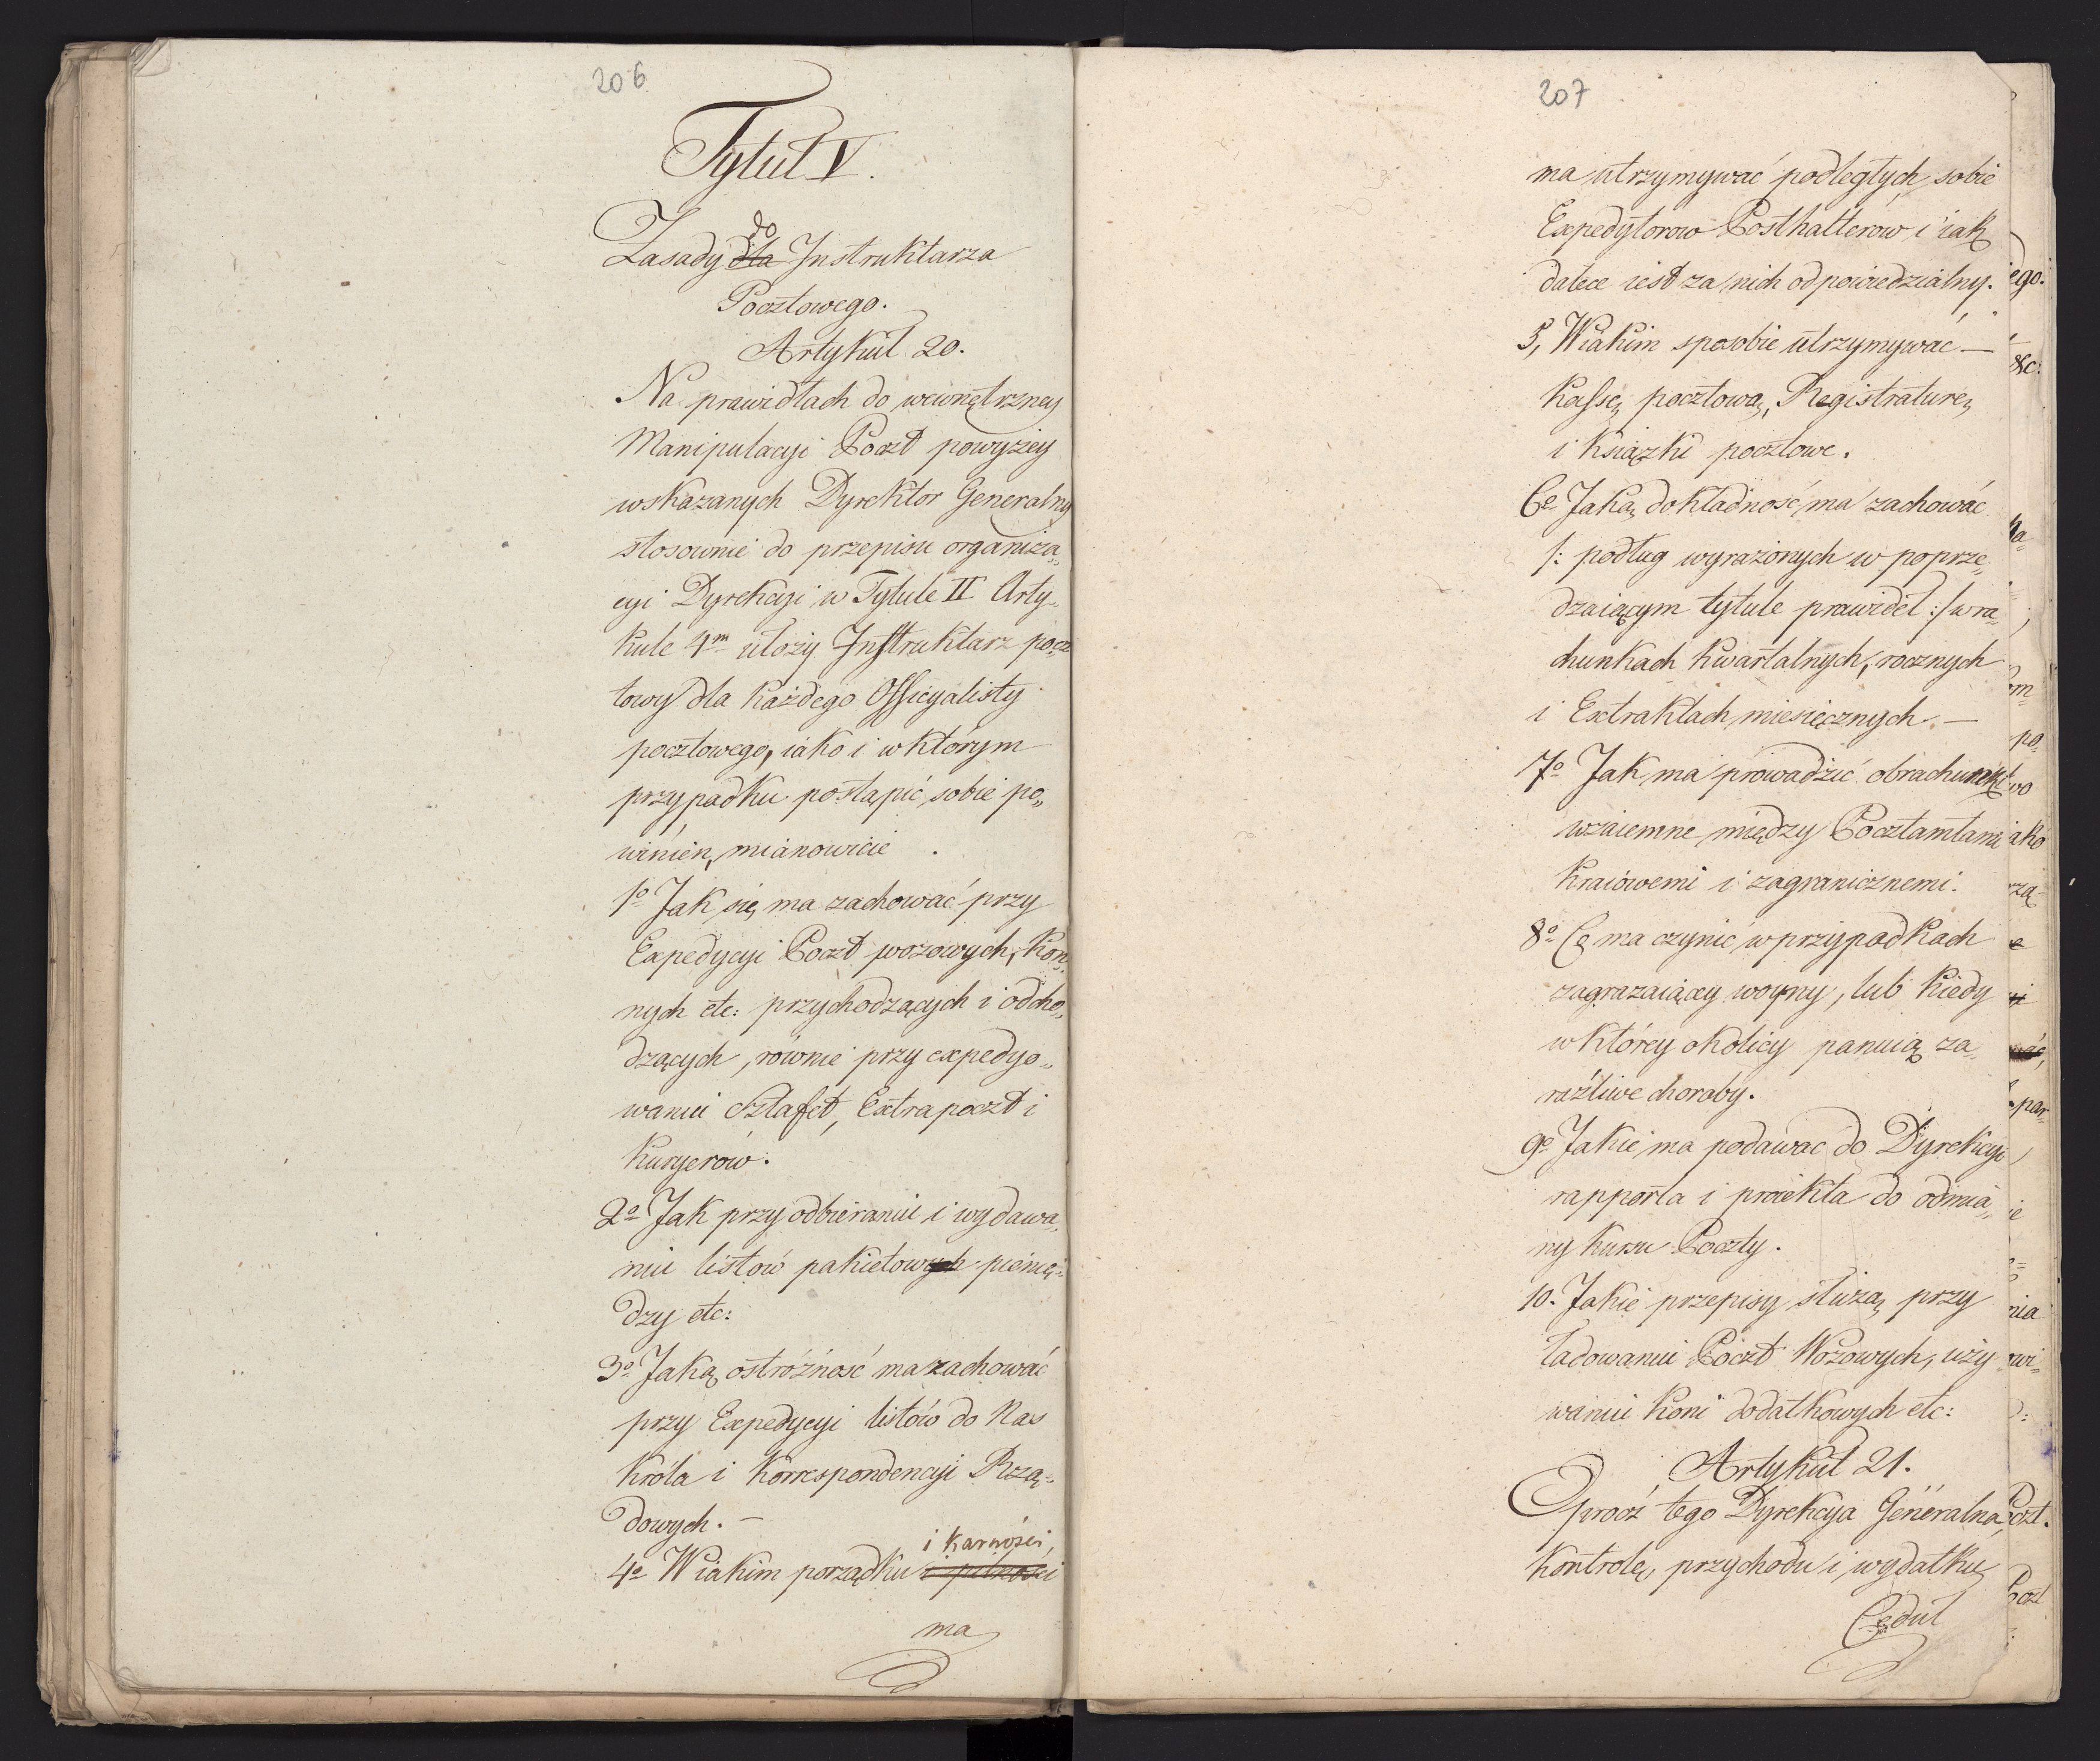 206
Tytuł V.
do
Zasady dla Instruktarza
Pocztowego.
Artykuł 20.
Na prawidłach do wewnętrzney
Manipulacyi Poczt powyżey
wskazanych Dyrektor Generalny
stosownie do przepisu organiza„
cyi Dyrekcyi w Tytule II Arty„
kule 4m ułoży Instruktarz pocz
towy dla każdego Officyalisty
pocztowego, iako i w którym
przypadku postąpić sobie po„
winien, mianowicie
1o Jak się ma zachować przy
Expedycyi Poczt wozowych, kon„
nych etc: przychodzących i odcho„
dzących, równie przy expedyo„
waniu Sztafet, Extrapoczt i
Kuryerów.
2o Jak przy odbieraniu i wydawa„
niu listów pakietowych pienię„
dzy etc:
3o Jaką ostróżność ma zachować
przy Expedycyi listów do Nas
Króla i Korrespondencyi Rzą„
dowych. –
i karności,
4o W iakim porządku i pilności
ma
207
ma utrzymywać podległych sobie
Expedytorow Posthalterow i iak
dalece iest za nich odpowiedzialny.
5, W iakim sposobie utrzymywać –
Kassę pocztową, Registraturę
i Książki pocztowe.
6o Jaką dokładność ma zachować
/: podług wyrażonych w poprze„
dzaiącym tytule prawideł :/ w ra„
chunkach kwartalnych, rocznych
i Extraktach miesięcznych –
7o Jak ma prowadzić obrachunki
wzaiemne między Pocztamtami
Kraiowemi i zagranicznemi.
8o Co ma czynić w przypadkach
zagrażaiącey woyny, lub kiedy
w którey okolicy panuią za„
raźliwe choroby.
9o Jakie ma podawac do Dyrekcyi
rapporta i proiekta do odmia„
ny kursu Poczty.
10. Jakie przepisy służą przy
ładowaniu Poczt Wozowych, uży
waniu koni dodatkowych etc:
Artykuł 21.
Oprocz tego Dyrekcya Generalna
kontrolę, przychodu i wydatku
Cedul